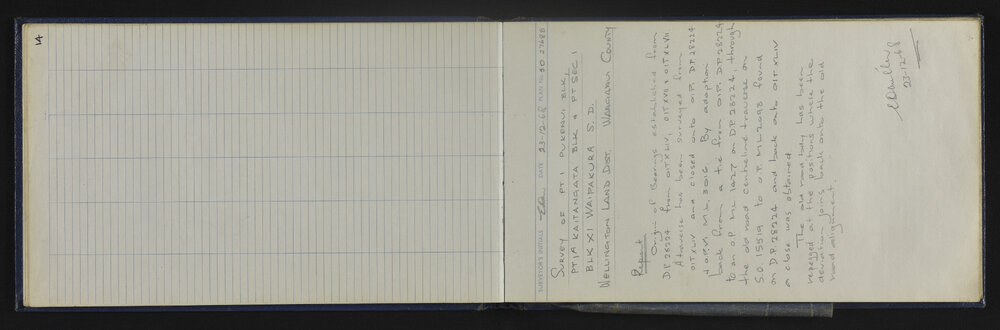 14
SURVEYOR'S INITIALS DATE 23-12-68 PLAN No. SO 27688
SURVEY OF PT 1 PUKENUI BLK,
PT 1A KAITANGATA BLK & PT SEC 1
BLK XI WAIPAKURA S.D.
WELLINGTON LAND DIST. WANGANUI COUNTY
Report
Origin of Bearings established from
DP 28224 from OIT XLIV, OIT XVII & OIT XLVII
A traverse has been surveyed from
OIT XLIV and closed onto OIP, DP 28224
& OPM ML 3016 By adoption
back from a tie from OIP, DP 28224
to an OP ML 1027 on DP 28224, through
the old road centreline traverse on
S.O. 15519 to O.P. ML 2098 found
on DP 28224 and back onto OIT XLIV
a close was obtained
The old road body has been
repegged at the positions where the
deviation joins back onto the old
road alignment.
23-12-68